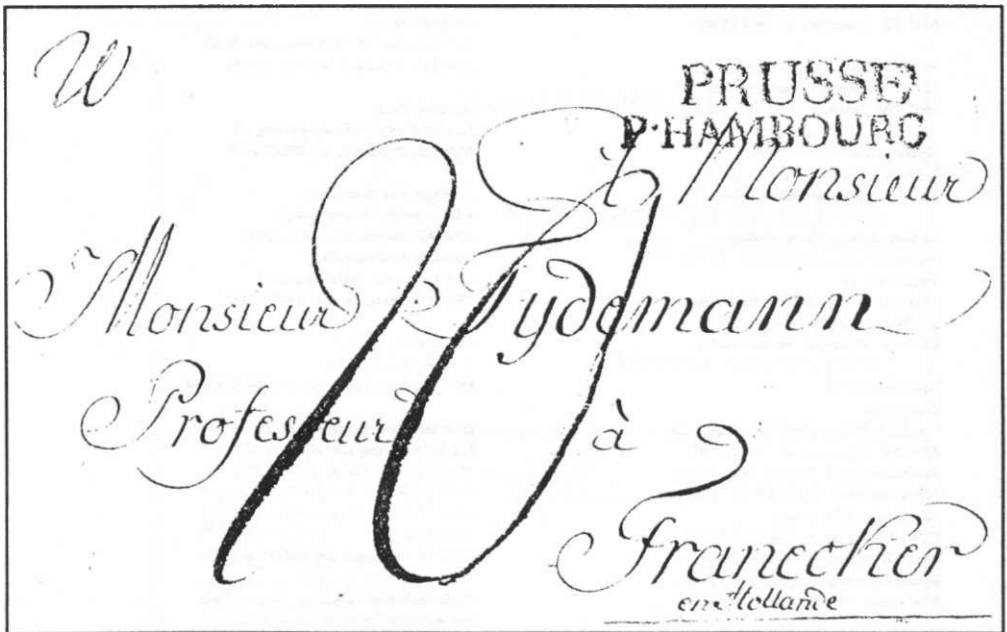 W
PRUSSE
P.HAMBOURG
à Monsieur
Monsieur Tydemann
Professeur
à
Franecker
en Hollande